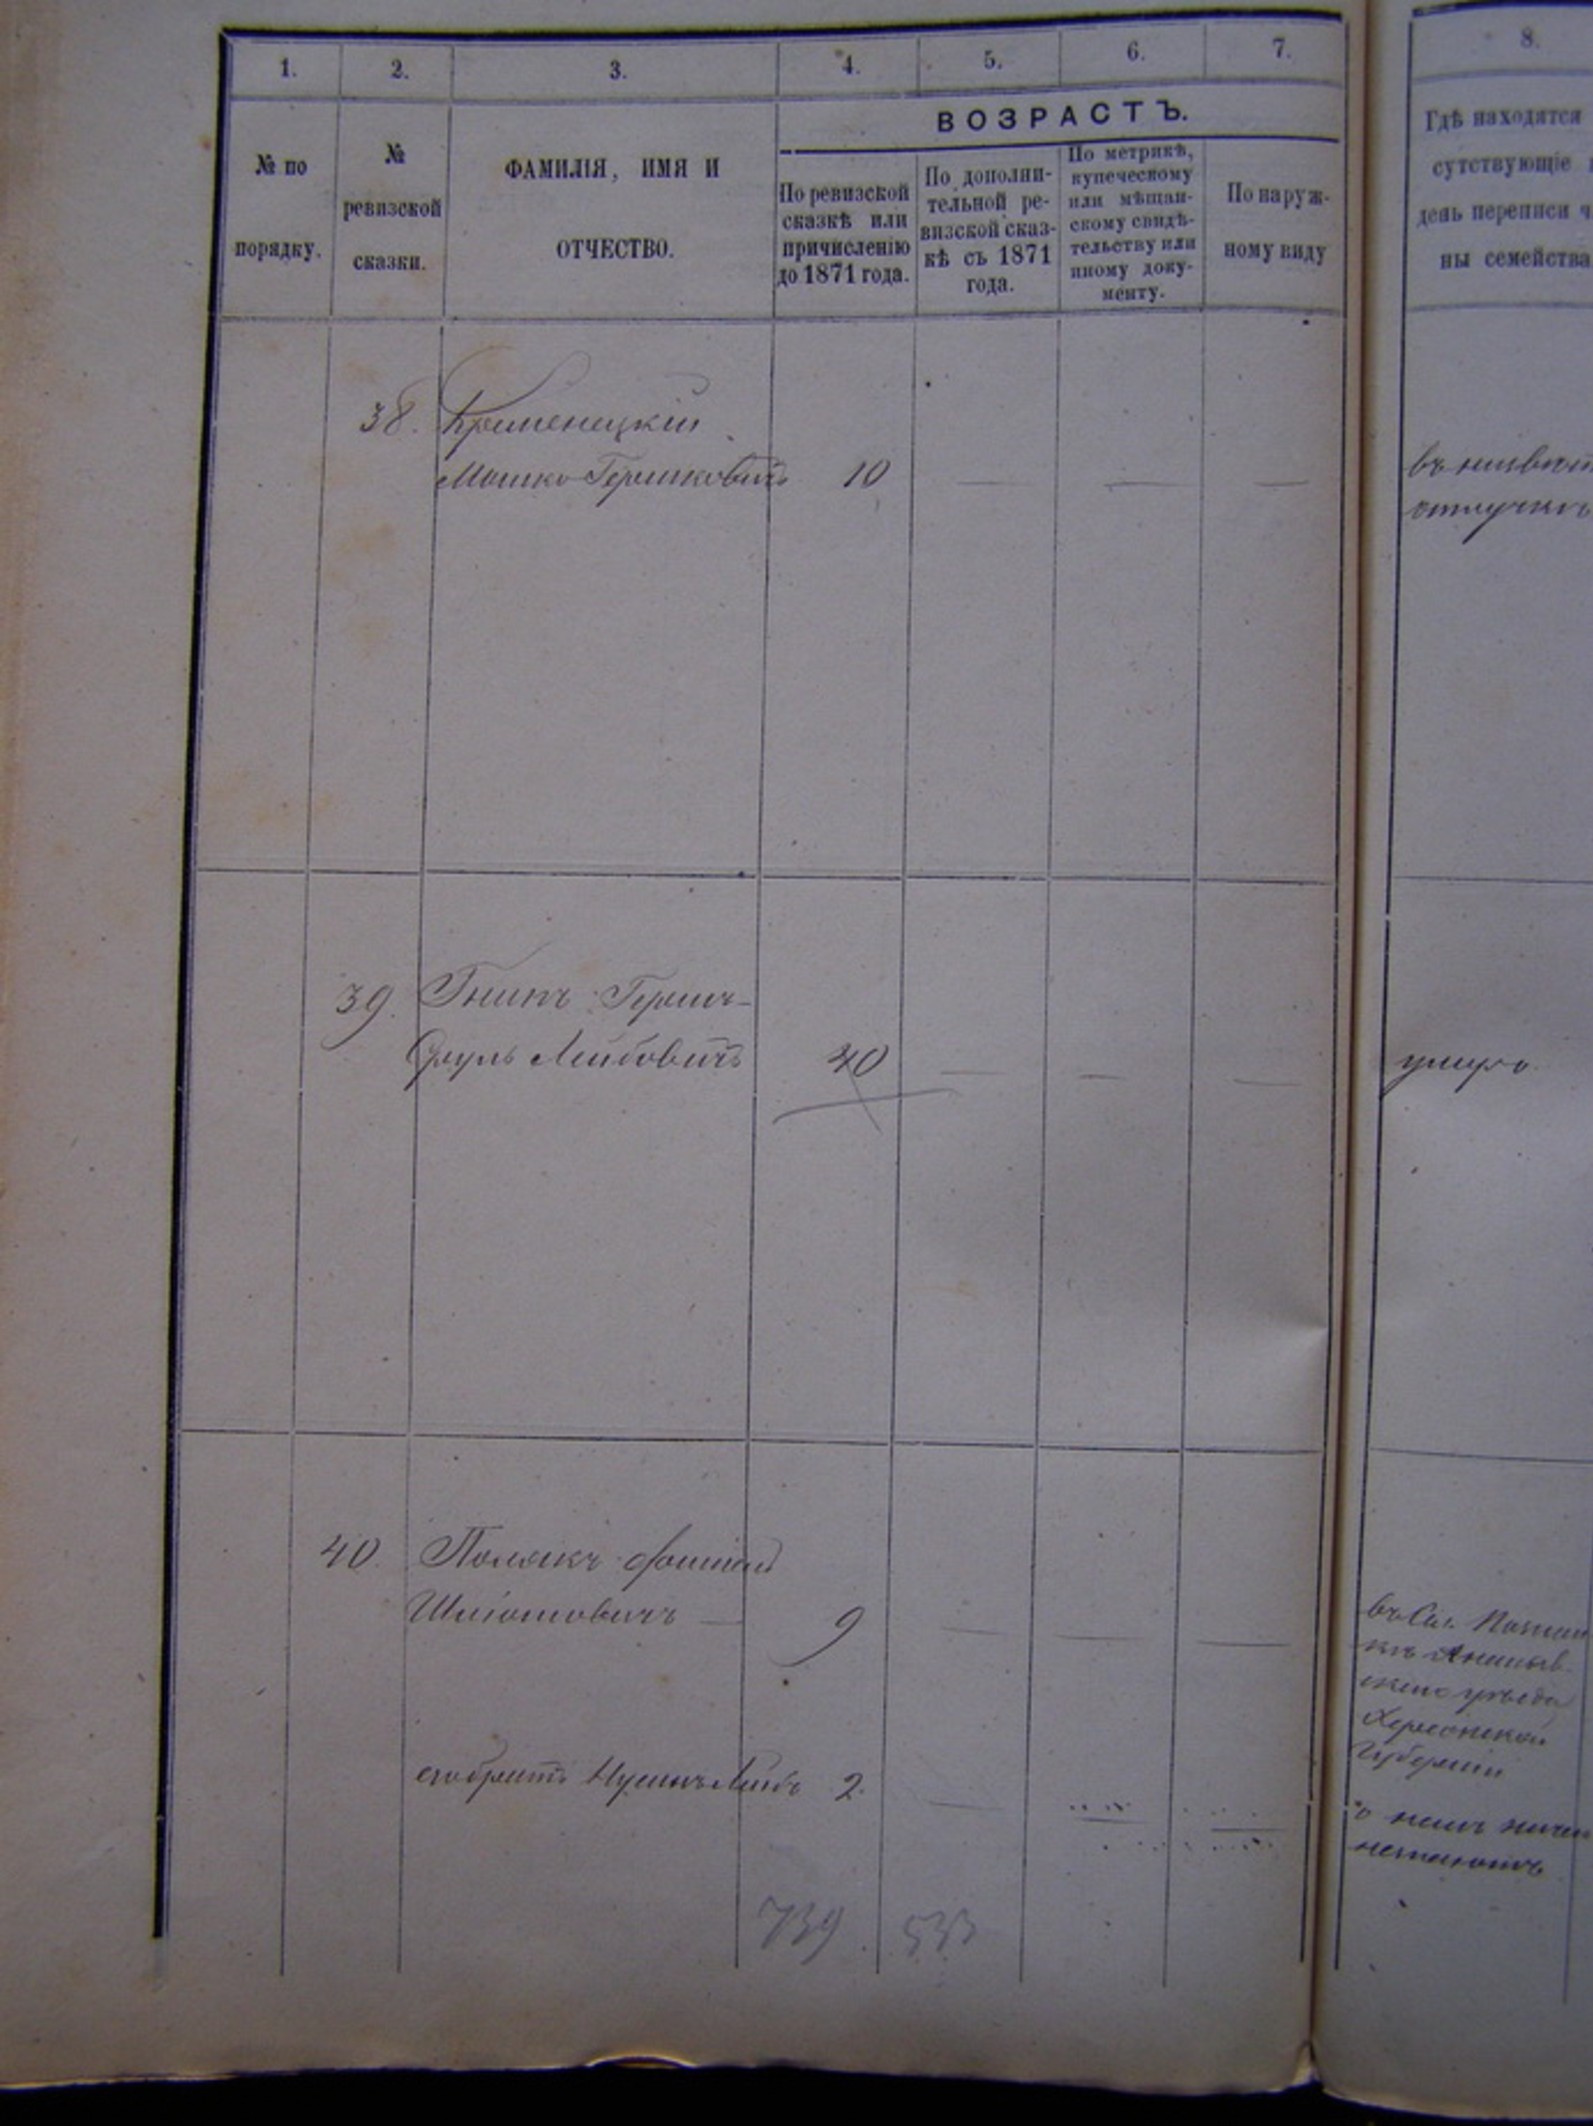 1. 2. 3. 4. 5. 6. 7. 8.
ВОЗРАСТЪ.
№ по
порядку.
№
ревизской
сказки.
ФАМИЛІЯ, ИМЯ И
ОТЧЕСТВО.
По ревизской
сказкѣ или
причисленію
до 1871 года.
По дополни-
тельной ре-
визской сказ-
кѣ съ 1871
года.
По метрикѣ,
купеческому
или мѣщан-
скому свидѣ-
тельству или
иному доку-
менту.
По наруж-
ному виду
Гдѣ находятся
сутствующіе
день переписи ч
ны семейства
38. Кременецкій
Мошко Гершковичъ 10 — — —
отлучкѣ
39. Гершъ-
Сруль Лейбовичъ 40 — — —
умеръ
40. Полякъ
9 — — —
въ
уѣзда
Херсонской
Губерніи
его братъ 2. —
о немъ ничего
незнаютъ
739 533